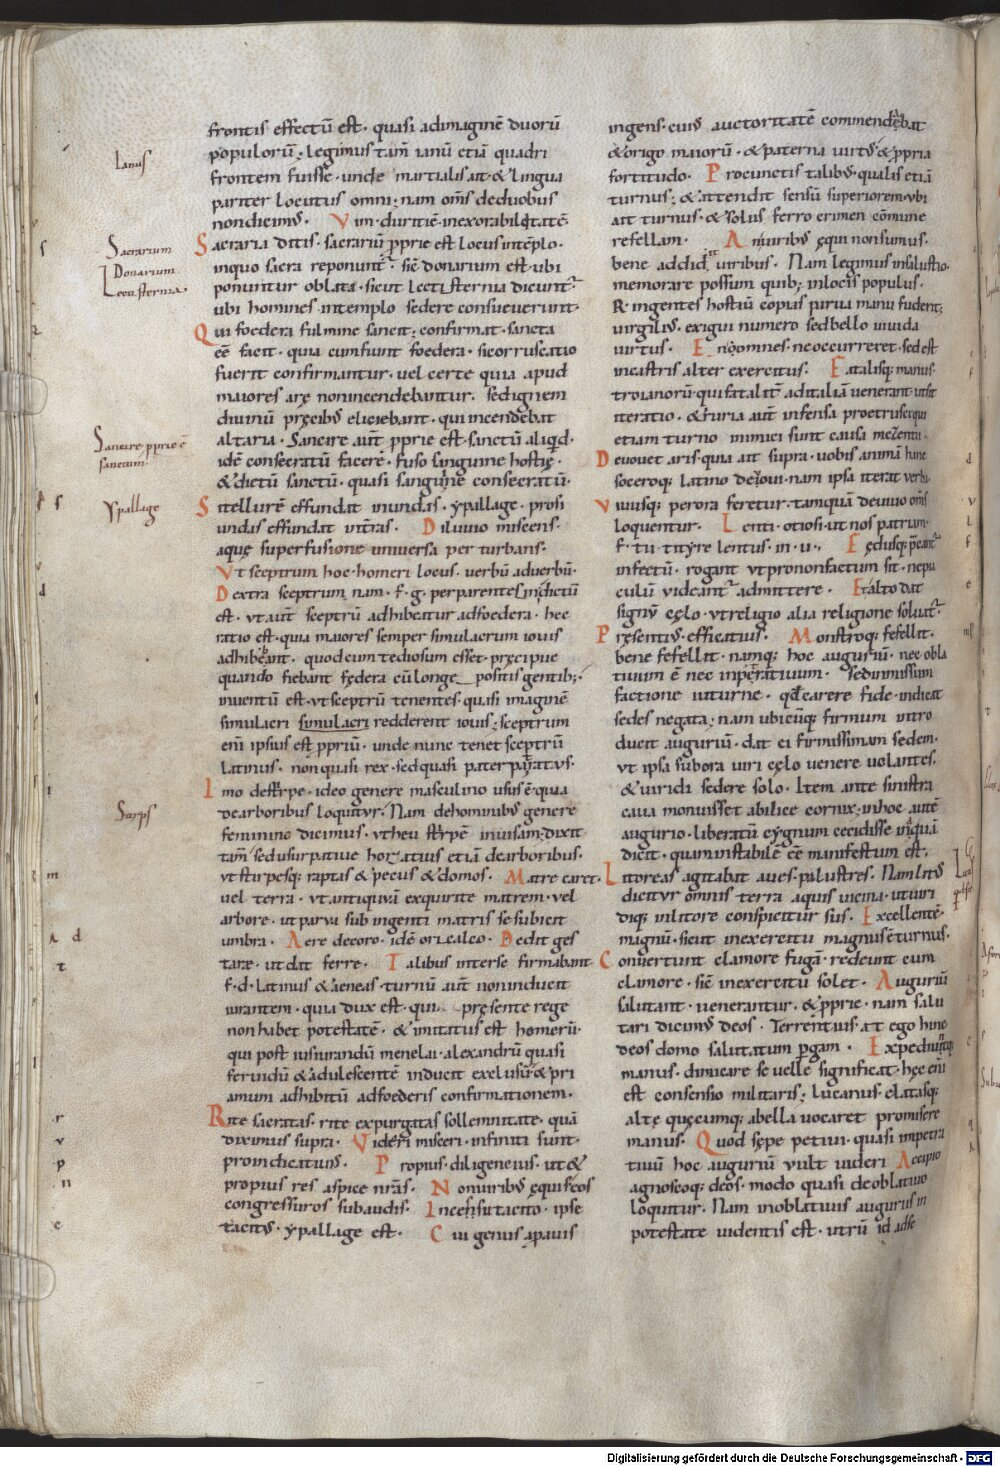 frontis effectū est · quasi adimaginē duorū
populorū ; legimus tam̄ ianū etiā quadri
frontem fuisse · unde martialis ait · & lingua
pariter locutus omni ; nam om̄s deduobus
non dicim᾽ · Vim · duritiē · inexorabilitatē ·
Sacraria ditis · sacrariū p̱prie est locus intēplo ·
inquo sacra reponunt᷑ · sic̄ donarium est · ubi
ponuntur oblata · sicut lectisternia dicunt᷑
ubi homines intemplo sedere consueuerunt ·
Qui foedera fulmine sancit ; confirmat · sancta
eē facit · quia cum fiunt foedera · si coruscatio
fuerit confirmantur · uel certe quia apud
maiores arę non incendebantur · sed ignem
diuinū pręcib᾽ eliciebant · qui incendebat
altaria · Sancire aut̄ p̱prie est · sanctū aliqd̄ ·
idē consecratū facere · fuso sanguine hostię ·
& dictū sanctū · quasi sanguine consecratū ·
Si tellurē effundat inundas · ypallage · pro si
undas effundat int̄ras · Diluuio miscens ·
aquę superfusione uniuersa per turbans ·
Vt sceptrum hoc · homeri locus · uerbū aduerbū ·
Dextra sceptrum nam · f · g · per parentesin dictū
est · ut aut̄ sceptrū adhibeatur adfoedera · hec
ratio est · quia maiores semper simulacrum iouis
adhibebant · quod cum tediosum esset · pręcipue
quando fiebant fędera cū longe positis gentib; ·
inuentū est · ut sceptrū tenentes · quasi imaginē
simulacri simulacri redderent iouis ; sceptrum
eni̅ ipsius est p̱priū · unde nunc tenet sceptrū
latinus · non quasi rex · sed quasi pater patrat᾽ ·
Imo destirpe · ideo genere masculino usus ē · quia
dearboribus loquitur · Nam dehominib᾽ genere
feminino dicimus · ut heu stirpē inuisam · dixit
tam̄ sed usurpatiue horatius etiā dearboribus ·
ut stirpesq; raptas & pecus & domos · Matre caret ·
uel terra · ut antiquā exquirite matrem · uel
arbore · ut parua sub ingenti matris se subicit
umbra · Aere decoro · idē oricalco · Dedit ges
tare · ut dat ferre · Talibus interse firmabant
f · d · latinus & aeneas · turnū aut̄ non inducit
iurantem · quia dux est · qui pręsente rege
non habet potestatē · & imitatus est homerū ·
qui post iusiurandū menelai · alexandrū quasi
feriundū & adulescentē inducit exclusū & pri
amum adhibitū adfoederis confirmationem ·
Rite sacratas · rite expurgatas sollemnitate · quā
diximus supra · Videri misceri · infiniti sunt ·
pro indicatiuis · Propius · diligencius · ut &
propius res aspice nr̄as · Non uirib᾽ ęquis eos
congressuros subaudis · Incessu tacito · ipse
tacit᾽ · ypallage est · Cui genus apauis
ingens · eius auctoritatē commendabat
& origo maiorū · & paterna uirt᾽ & p̱pria
fortitudo · Pro cunctis talib᾽ · qualis etiā
turnus ; & attendit sensū superiorem · ubi
ait turnus · & solus ferro crimen cōmune
refellam · At uirib᾽ ęqui non sumus ·
bene addidit uiribus · Nam legimus insalustio ·
memorare possum quib; inlocis populus ·
R · ingentes hostiū copias parua manu fuderit ;
uirgilius · exigui numero sed bello uiuida
uirtus · En omnes · ne occurreret · sed est
incastris alter exercitus · Fatalisq; manus ·
troianorū · qui fatalit᷑ ad italiā uenerant · ut sit
iteratio · & furia aut̄ infensa pro etrusci qui
etiam turno inimici sunt causa mezentii ·
Deuouet aris · quia ait supra · uobis animā hanc
soceroq; latino deuoui · nam ipsa iterat uerba ·
Viuusq; per ora feretur · tamquā de uiuo om̄s
loquentur · Lenti · otiosi · ut nos patriam ·
f · tu tityre lentus · in · u · Fędusq; p̱cant᷑
infectū · rogant ut pro non facto sit · nequa
culū uideant᷑ admittere · Et alto dat
signū cęlo · ut religio alia religione soluat᷑ ·
Pręsenti᾽ · efficatius · Monstroq; fefellit ·
bene fefellit · namq; hoc auguriū · nec obla
tiuum ē nec inpetratiuum · sed inmissum
factione iuturne · qd̄ carere fide · indicat
sedes negata ; nam ubicūq; firmum intro
ducit auguriū · dat ei firmissimam sedem ·
ut ipsa sub ora uiri cęlo uenere uolantes ·
& uiridi sedere solo · Item ante sinistra
caua monuisset abilice cornix · in hoc aut̄
augurio · liberatū cygnum cecidisse in aquā
dicit · quam instabilē eē manifestum est ·
Litoreas agitabat aues · palustres · Nam lit᾽
dicitur omnis terra aquis uicina · ut uiri
diq; in litore conspicitur sus · Excellentē ·
magnū · sicut inexercitu magnus ē turnus ·
Conuertunt clamore fugā · redeunt cum
clamore · sic̄ inexercitu solet · Auguriū
salutant · uenerantur · & p̱prie · nam salu
tari dicim᾽ deos · Terrentius · at ego hinc
deos domo salutatum p̱gam · Expediuntq;
manus · dimicare se uelle significat · hęc eni̅
est consensio militaris ; lucanus · elatasq;
altę quęcumq; abella uocaret promisere
manus · Quod sępe petiui · quasi impetra
tiuū hoc auguriū uult uideri Accipio
agnoscoq; deos · modo quasi de oblatiuo
loquitur · Nam inoblatiuis auguriis in
potestate uidentis est · utrū id adse
Ianus
Sacrarium
Donarium
Lectisternia ·
Sancire p̱prie ē
sanctum ·
ypallage
Stirps